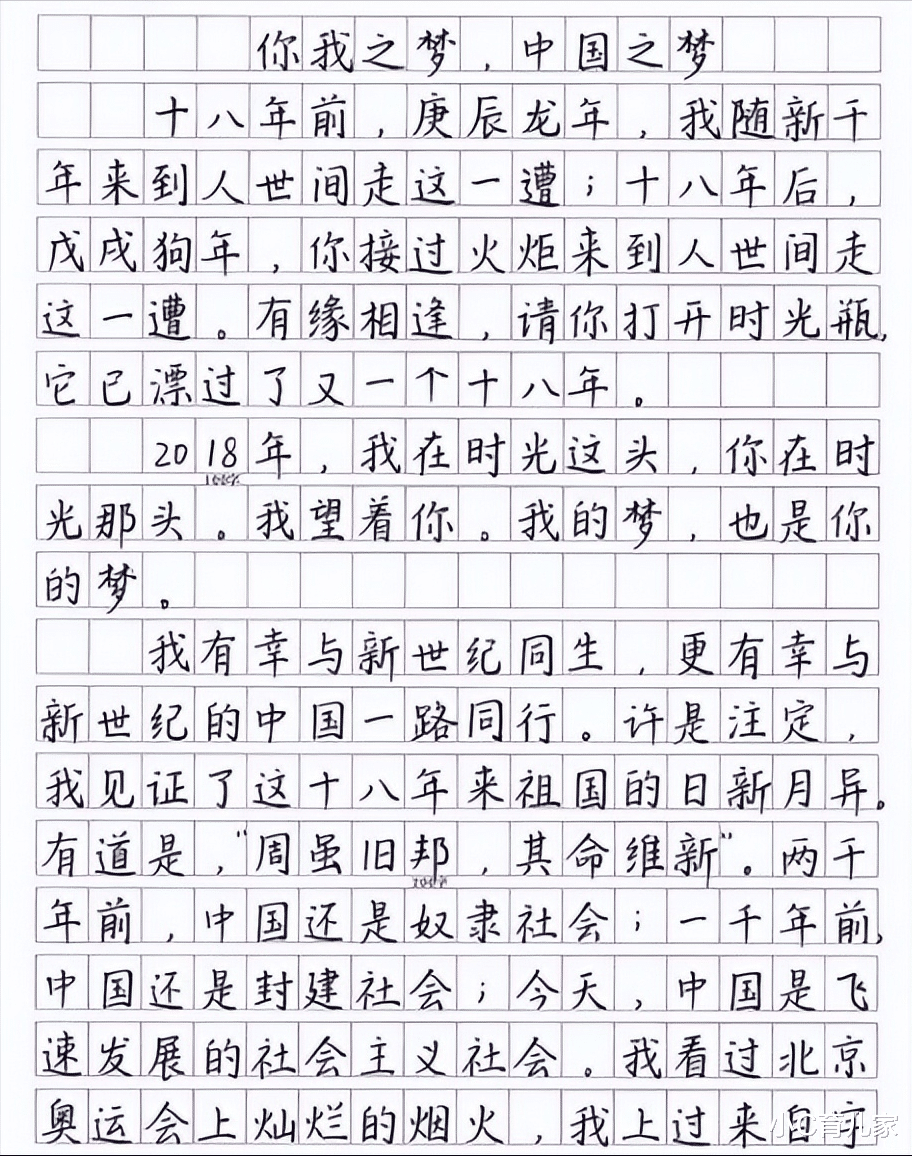 你我之梦，中国之梦
十八年前，庚辰龙年，我随新千
年来到人世间走这一遭；十八年后，
戊戌狗年，你接过火炬来到人世间走
这一遭。有缘相逢，请你打开时光瓶，
它已漂过了又一个十八年。
2018年，我在时光这头，你在时
光那头。我望着你。我的梦，也是你
的梦。
我有幸与新世纪同生，更有幸与
新世纪的中国一路同行。许是注定，
我见证了这十八年来祖国的日新月异。
有道是，"周虽旧邦，其命维新"。两千
年前，中国还是奴隶社会；一千年前，
中国还是封建社会；今天，中国是飞
速发展的社会主义社会。我看过北京
奥运会上灿烂的烟火，我上过来自宇
小C育儿家